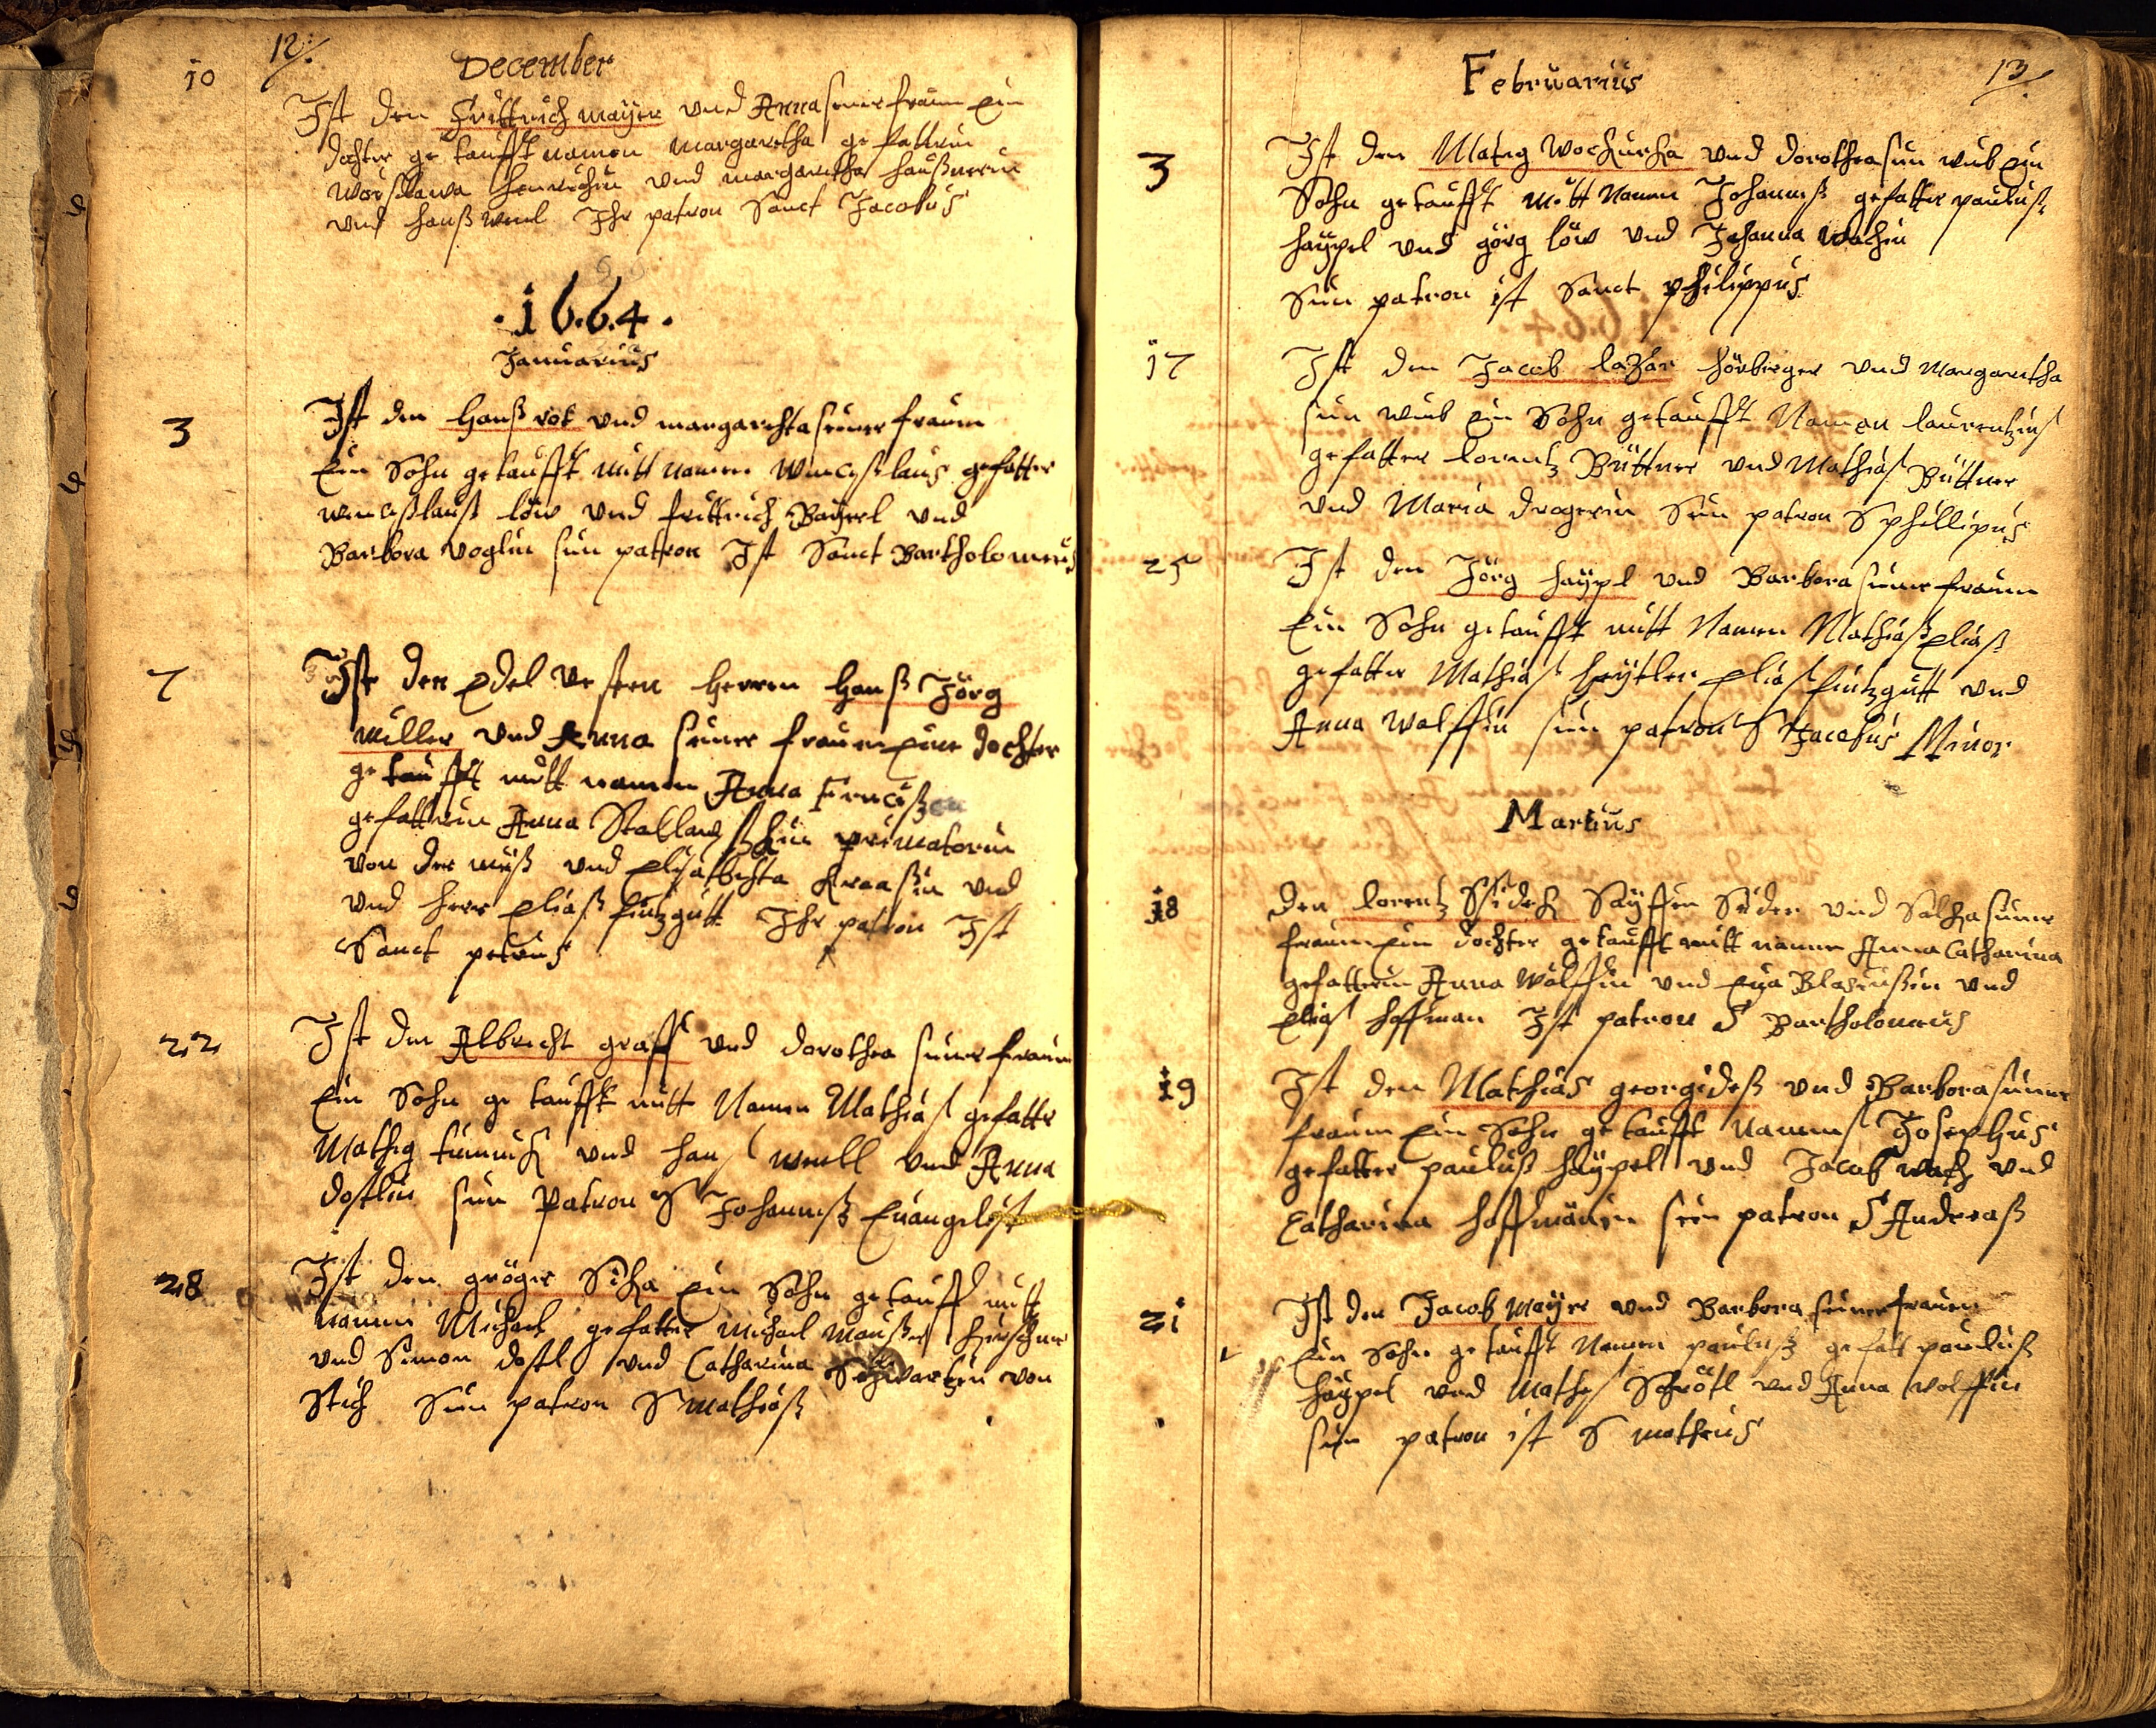 12/.
December
10 Ist den Frittrich mayer vnd Anna seiner frauen ein
dochter getaufft namen Margaretha gefatterin
vnd margaretha haußnerin
vnd hanß Ihr patron Sanct Jacobus
.1664.
Januarius
3 Ist den Hanß rot vnd margarehta seiner frauen
Ein Sohn getaufft mitt namen Wenceßlaus gefatter
wenceßlauß löw vnd frittrich Bayerl vnd
Barbora voglin sein patron Ist Sanct Bartholomeus
7 Ist den Edel vesten Herren Hanß Jörg
miller vnd Anna seiner frauen eine dochter
getaufft mitt namen Anna
gefatterin Anna primatorin
von der miß vnd Elisabehta vnd
vnd herr Eliaß Ihr patron Ist
Sanct petrus
22 Ist den Albrecht graff vnd dorothea seiner frauen
Ein Sohn getaufft mitt Namen Mathias gefatter
Mathig vnd hans vnd Anna
dostlin sein Patron S Johanneß Euangelist
28 Ist den gröger Ein Sohn getauff mitt
namen Michael gefatter Michael
vnd Simon dostl vnd Catharina Schwartzin von
Sein patron S mathiaß
Februarius
13/.
3 Ist den Matheg vnd dorothea sein weib ein
Sohn getaufft mitt Namen Johanneß gefatter pauluß
haÿpel vnd görg löw vnd Johanna
Sein patron ist Sanct philippus
17 Ist den Jacob lazar vnd Margaretha
sein weib ein Sohn getaufft Namen laurentzius
gefatter lorentz Büttner vnd Mathias Büttner
vnd Maria dragerin Sein patron S phillipus
25 Ist den Jörg haÿpl vnd Barbora seiner frauen
Ein Sohn getaufft mitt Namen Mathiaß Eliaß
gefatter Mathias Elias vnd
Anna Wolffin sein patron S Jacobus Minor
Martius
18 den lorentz Saÿffen Sider vnd seiner
frauen ein dochter getaufft mitt namen Anna Catharina
gefatterin Anna Wolffin vnd Eua vnd
Elias hoffman Ist patron S Bartholomeus
19 Ist den Mathias georgideß vnd Barbora seiner
frauen ein Sohn getaufft namens Josephus
gefatter pauluß haÿpel vnd Jacob vnd
Catharina hoffmänin sein patron S Andreaß
21 Ist den Jacob Mayer vnd Barbora seiner frauen
Ein Sohn getaufft Namen pauluß gefatt pauluß
haÿpel vnd Mathes Schrötl vnd Anna Wolffin
sein patron ist S matheus